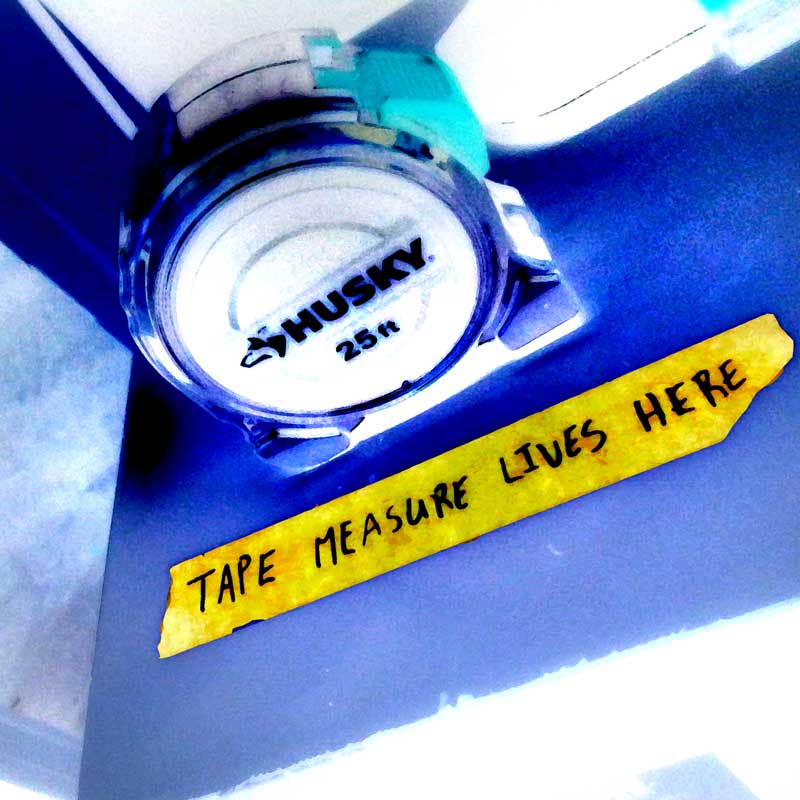 HUSKY
25ft
TAPE MEASURE LIVES HERE